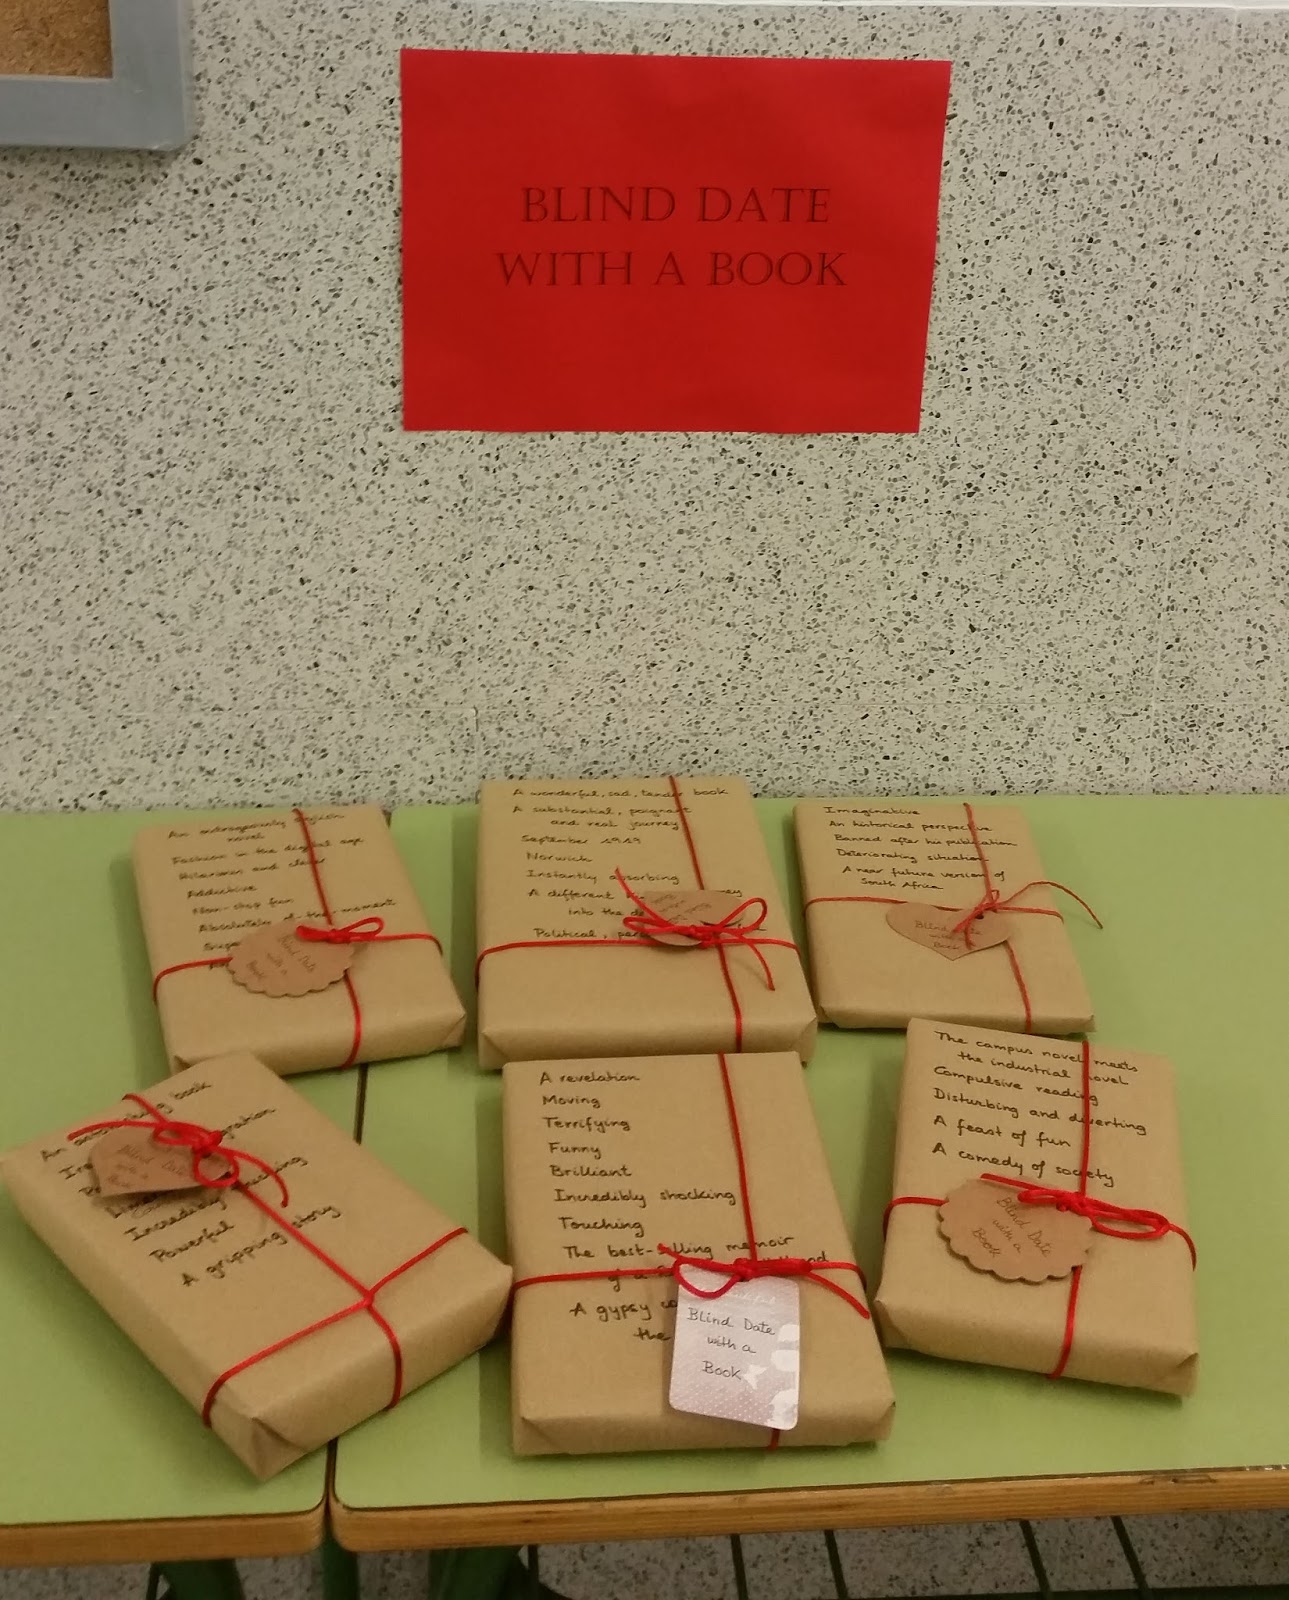 BLIND DATE
WITH A BOOK
An outrageously
novel
Fashion in the digital age
Hilarious and clever
Addictive
Non-stop fun
Absolutely of-the-moment
Blind Date
with a
Book
A wonderful, sad, tender book
A substantial, poignant
and real journey
September 1919
Norwich
Instantly absorbing
A different
into the
Political,
Imaginative
An historical perspective
Banned after his publication
Deteriorating situation
A near future version of
South Africa
Blind Date
with a
Book
An book
touching
Incredibly
Powerful
A gripping story
Blind Date
with a
Book
A revelation
Moving
Terrifying
Funny
Brilliant
Incredibly shocking
Touching
The best-selling memoir
of a
A gypsy
the
Blind Date
with a
Book
The campus novel meets
the industrial novel
Compulsive reading
Disturbing and diverting
A feast of fun
A comedy of society
Blind Date
with a
Book